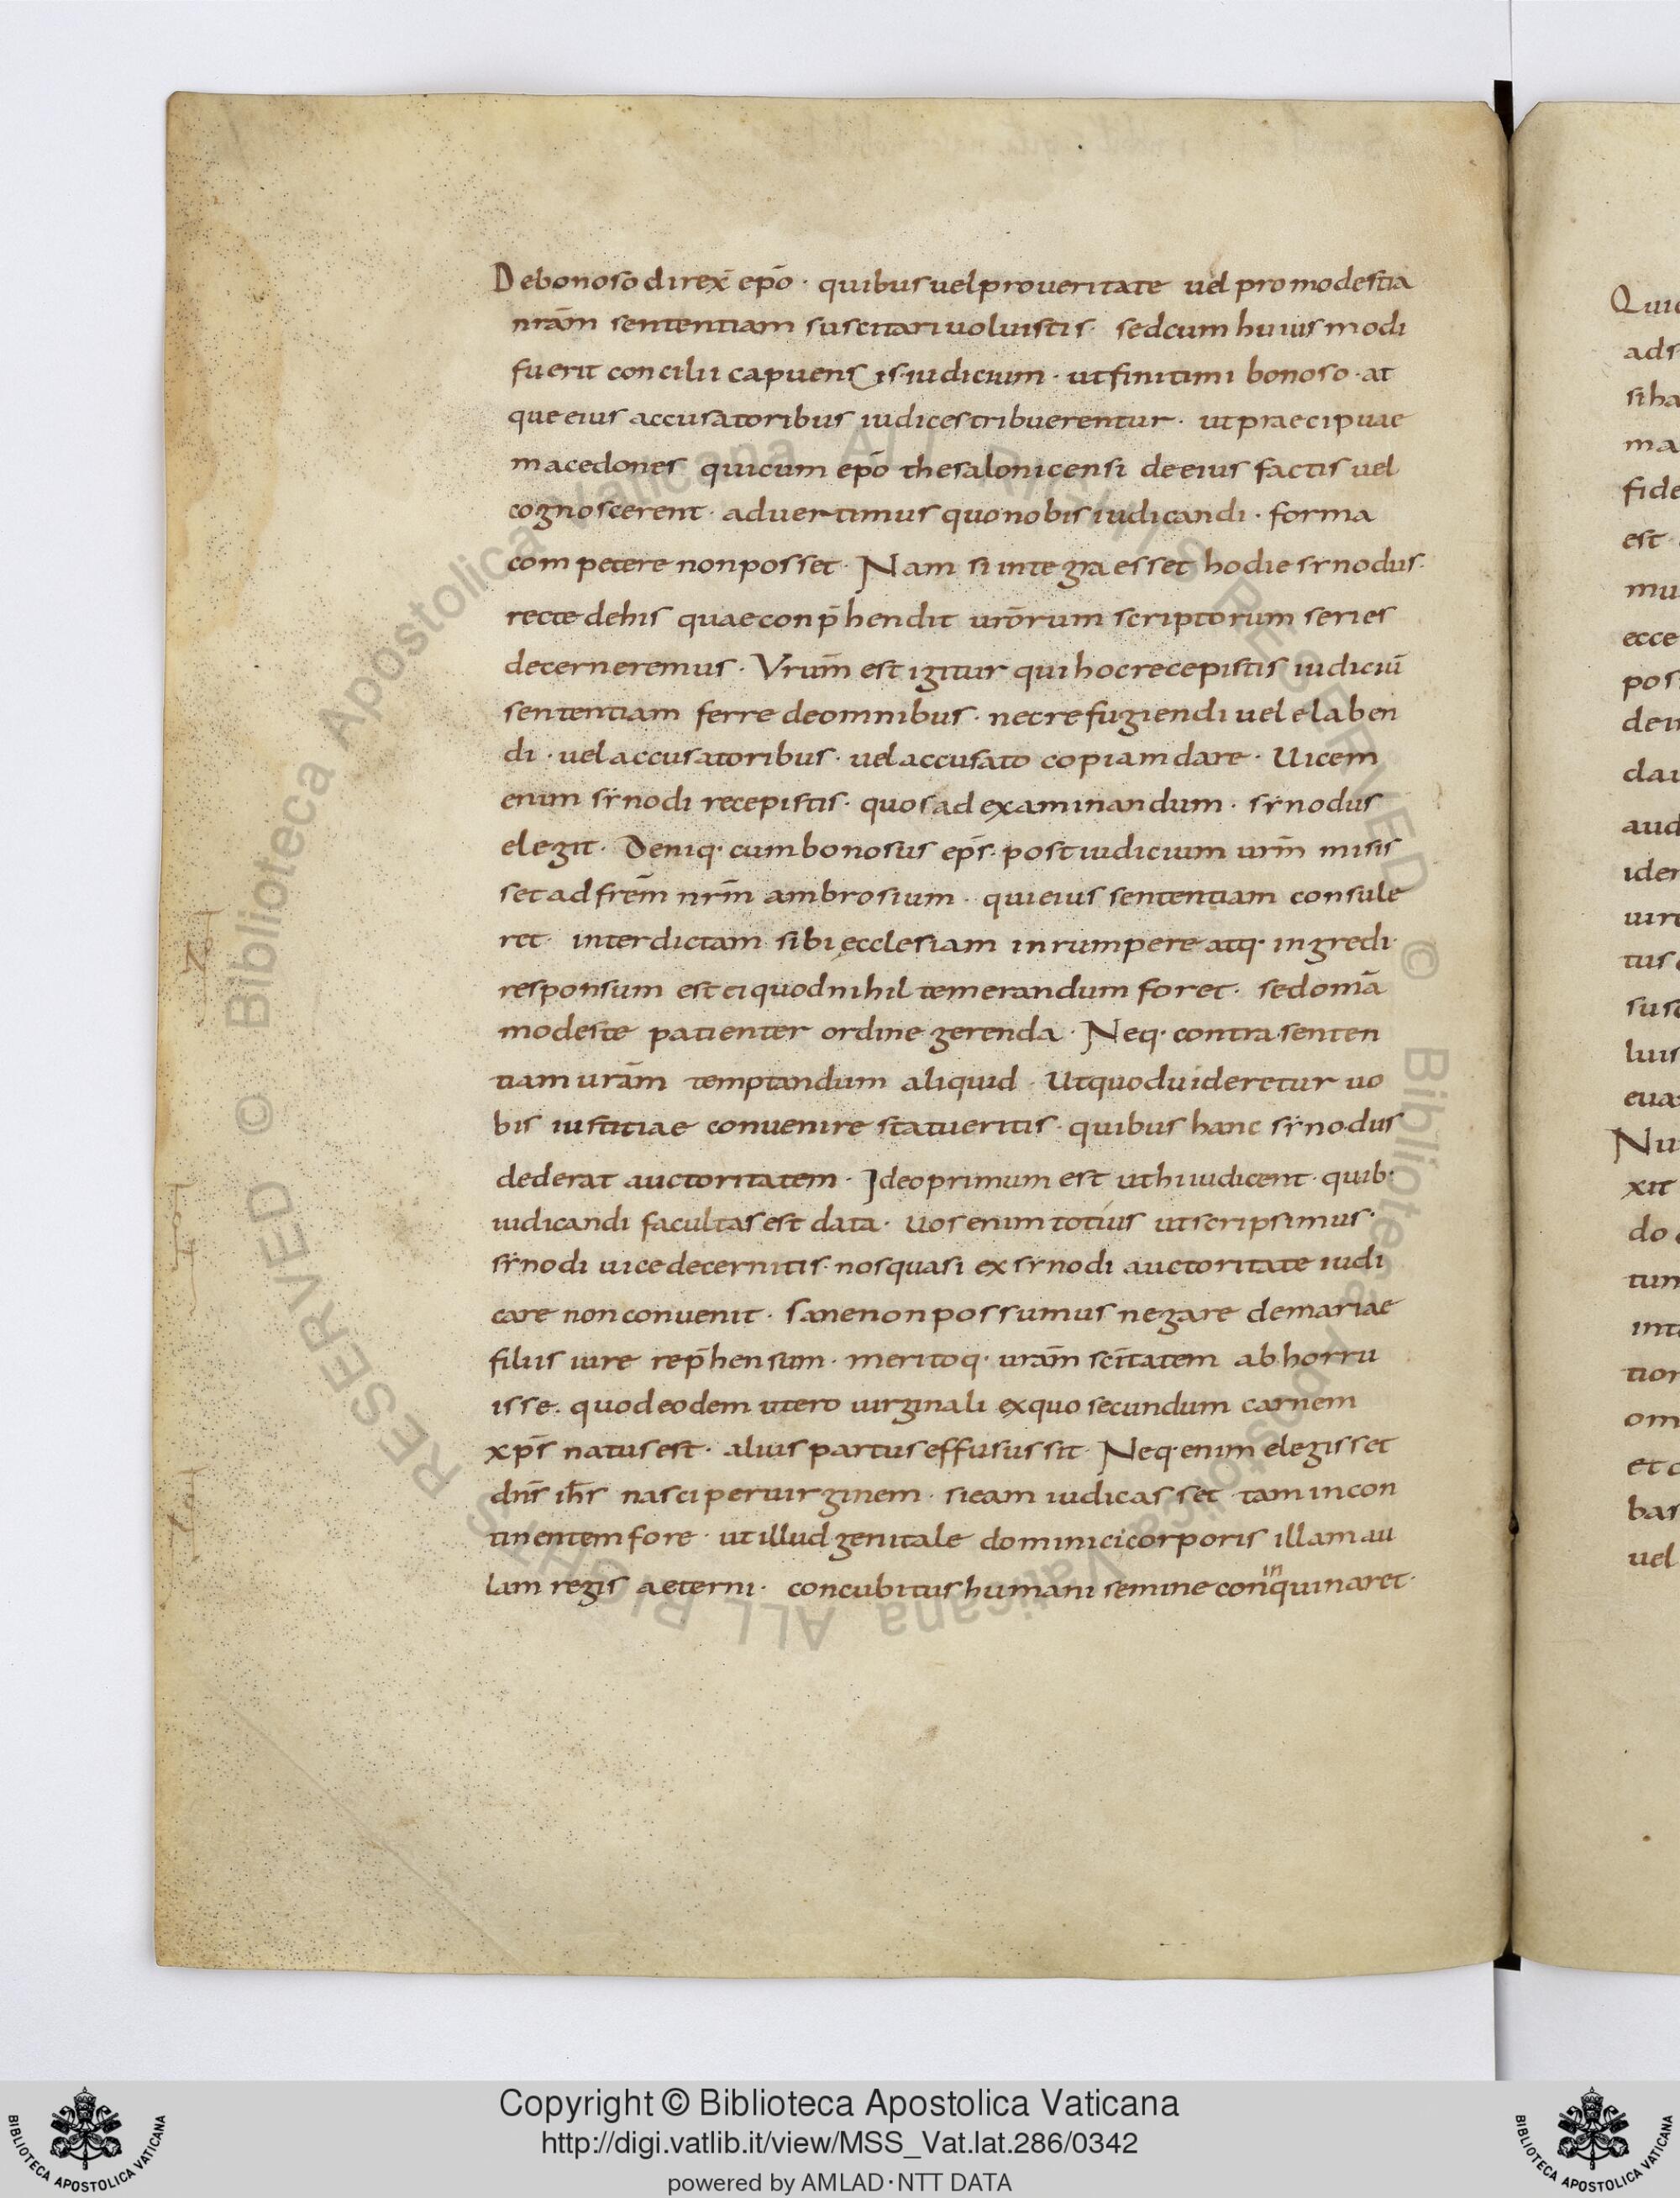 De bonoso direx̄ ep̄o · quibus vel pro veritate vel pro modestia
nr̄am sententiam suscitari voluistis · sed cum huius modi
fuerit concilii capuensis · iudicium · ut finitimi bonoso · at
que eius accusatoribus iudices tribuerentur · ut praecipuae
macedones qui cum ep̄o thesalonicensi de eius factis vel
cognoscerent · advertimus quo nobis iudicandi · forma
competere non posset · Nam si integra esset hodie synodus ·
recte de his quae conp̄hendit ur̄orum scriptorum series
decerneremus · Vrum̄ est igitur qui hoc recepistis iudiciū
sententiam ferre de omnibus · nec refugiendi vel elaben
di · vel accusatoribus · vel accusato copiam dare · Uicem
enim synodi recepistis · quos ad examinandum · synodus
elegit · Deniq· cum bonosus ep̄s · post iudicium ur̄m misis
set ad frēm nr̄m ambrosium · qui eius sententiam consule
ret · interdictam sibi ecclesiam inrumpere atq· ingredi ·
responsum est ei quod nihil temerandum foret · sed omā
modeste patienter ordine gerenda · Neq· contra senten
tiam urām temptandum aliquid · Ut quod uideretur uo
bis iustitiae convenire statueritis · quibus hanc synodus
dederat auctoritatem · Ideo primum est ut hi iudicent · quib·
iudicandi facultas est data · uos enim totius ut scripsimus ·
synodi uice decernitis · nos quasi ex synodi auctoritate iudi
care non convenit · sane non possumus negare de mariae
filiis iure rep̄hensum · meritoq· urām scītatem abhorru
isse · quod eodem utero uirginali ex quo secundum carnem
xp̄s natus est · alius partus effusus sit · Neq· enim elegisset
dn̄s ih̄s nasci per uirginem · si eam iudicasset · tam incon
tinentem fore · ut illud genitale dominici corporis illam au
lam regis aeterni · concubitus humani semine coninquinaret ·
Quic
ads
siha
ma
fide
est ·
mu
ecce
pos
dei
dau
aud
iden
uire
tus
sus
luis
eua
Nu
xit
do
tun
inte
tion
om
et c
bas
uel
© Biblioteca Apostolica Vaticana ALL RIGHTS RESERVED © Biblioteca Apostolica Vaticana ALL RIGHTS RESERVED
Copyright © Biblioteca Apostolica Vaticana
http://digi.vatlib.it/view/MSS_Vat.lat.286/0342
powered by AMLAD·NTT DATA
BIBLIOTECA APOSTOLICA VATICANA
BIBLIOTECA APOSTOLICA VATICANA